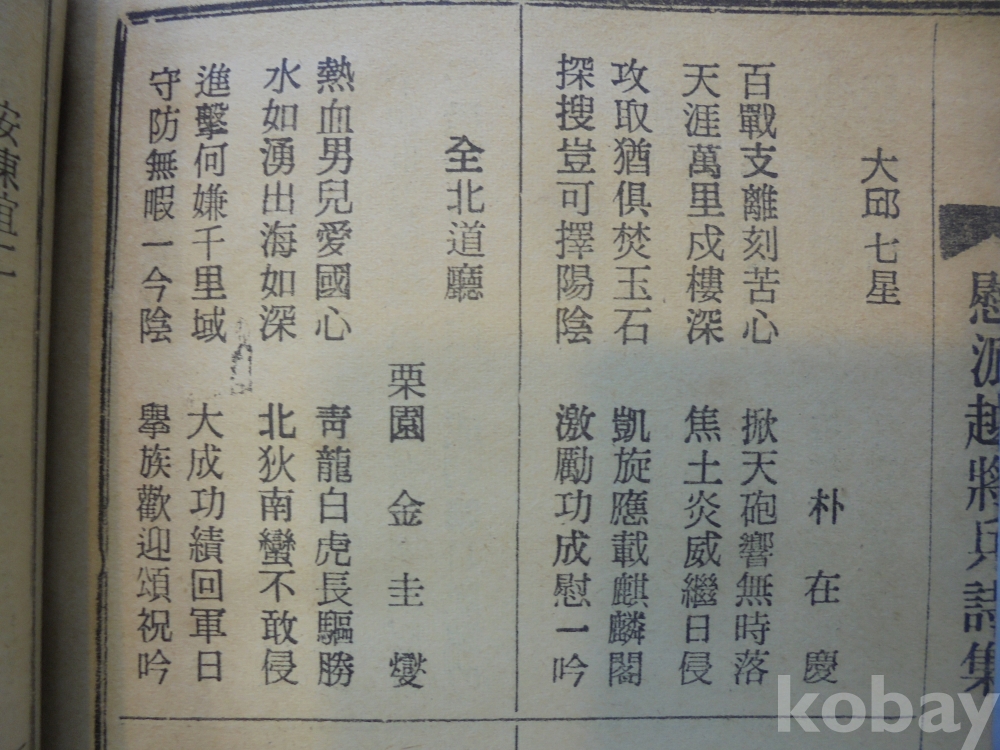 慰派越將兵詩集
大邱七星
朴在慶
百戰支離刻苦心 掀天砲響無時落
天涯萬里戍樓深 焦土炎威繼日侵
攻取猶俱焚玉石 凱旋應載麒麟閣
探搜豈可擇陽陰 激勵功成慰一吟
全北道廳
栗園 金圭燮
熱血男兒愛國心 靑龍白虎長驅勝
水如湧出海如深 北狄南蠻不敢侵
進擊何嫌千里域 大成功績回軍日
守防無暇一今陰 擧族歡迎頌祝吟
kobay